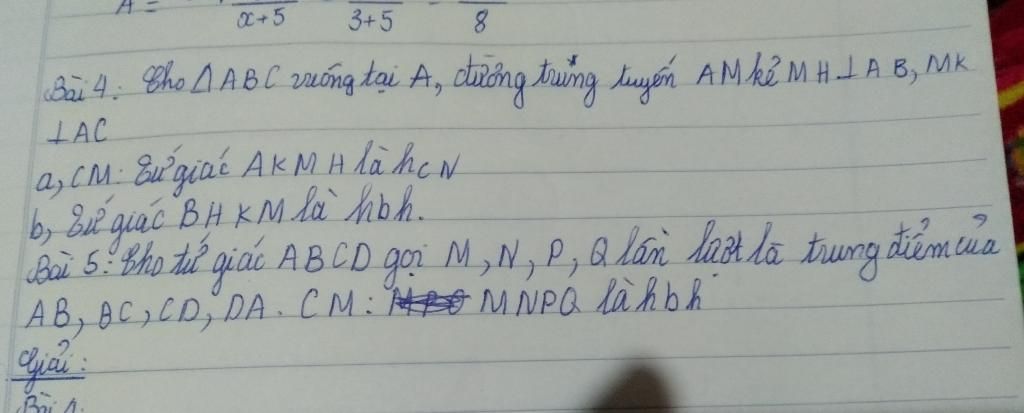 A = x+5 3+5 8
Bài 4: Cho △ABC vuông tại A, đường trung tuyến AM kẻ MH⊥AB, MK
⊥AC
a, CM: Tứ giác AKMH là hcN
b, Tứ giác BHKM là hbh.
Bài 5: Cho tứ giác ABCD gọi M, N, P, Q lần lượt là trung điểm của
AB, BC, CD, DA. CM: MNPQ là hbh
Giải:
Bài 1.